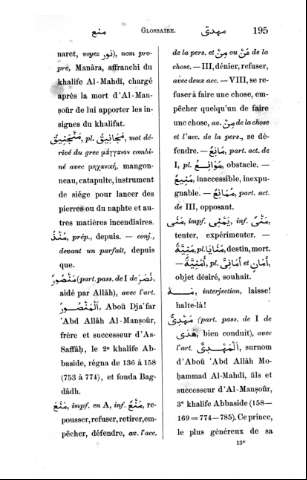 منع
GLOSSAIRE.
مهدى
195
naret, voyez نور), nom propre, Manâra, affranchi du
khalife Al-Mahdî, chargé
après la mort d'Al-Manṣoûr de lui apporter les insignes du khalifat.
مَنْجَنِيقٌ, pl. مَجَانِيقُ, mot dérivé du grec μάγγανον combiné avec μηχανική, mangonneau, catapulte, instrument
de siège pour lancer des
pierres ou du naphte et autres matières incendiaires.
مُنْذُ, prép., depuis. — conj.,
devant un parfait, depuis
que.
مَنْصُورٌ (part. pass. de I de نصر,
aidé par Allâh), avec l'art.
المَنْصُورُ, Aboû Dja'far
'Abd Allâh Al-Manṣoûr,
frère et successeur d'As-
Saffâḥ, le 2e khalife Abbaside, régna de 136 à 158
(753 à 774), et fonda Bagdâdh.
مَنَعَ, impf. en A, inf. مَنْعٌ, repousser, refuser, retirer, empêcher, défendre, av. l'acc.
de la pers. et مِنْ ou عَنْ de la
chose. — III, dénier, refuser,
avec deux acc. — VIII, se refuser à faire une chose, empêcher quelqu'un de faire
une chose, av. مِنْ de la chose
et l'acc. de la pers., se défendre. — مَانِعٌ, part. act. de
I, pl. مَوَانِعُ, obstacle. —
مَنِيعٌ, inaccessible, inexpugnable. — مُمَانِعٌ, part. act.
de III, opposant.
مَنَى, impf. يَمْنِى, inf. مَنْىٌ,
tenter, expérimenter. —
مَنِيَّةٌ, pl. مَنَايَا, destin, mort.
— أُمْنِيَّةٌ, pl. أَمَانِىُّ et أَمَانٍ,
objet désiré, souhait.
مَهْ, interjection, laisse!
halte-là!
مَهْدِىٌّ (part. pass. de I de
هَدَى bien conduit), avec
l'art. المَهْدِىُّ, surnom
d'Aboû 'Abd Allâh Moḥammad Al-Mahdî, fils et
successeur d'Al-Manṣoûr,
3e khalife Abbaside (158—
169 = 774—785). Ce prince,
le plus généreux de sa
13*